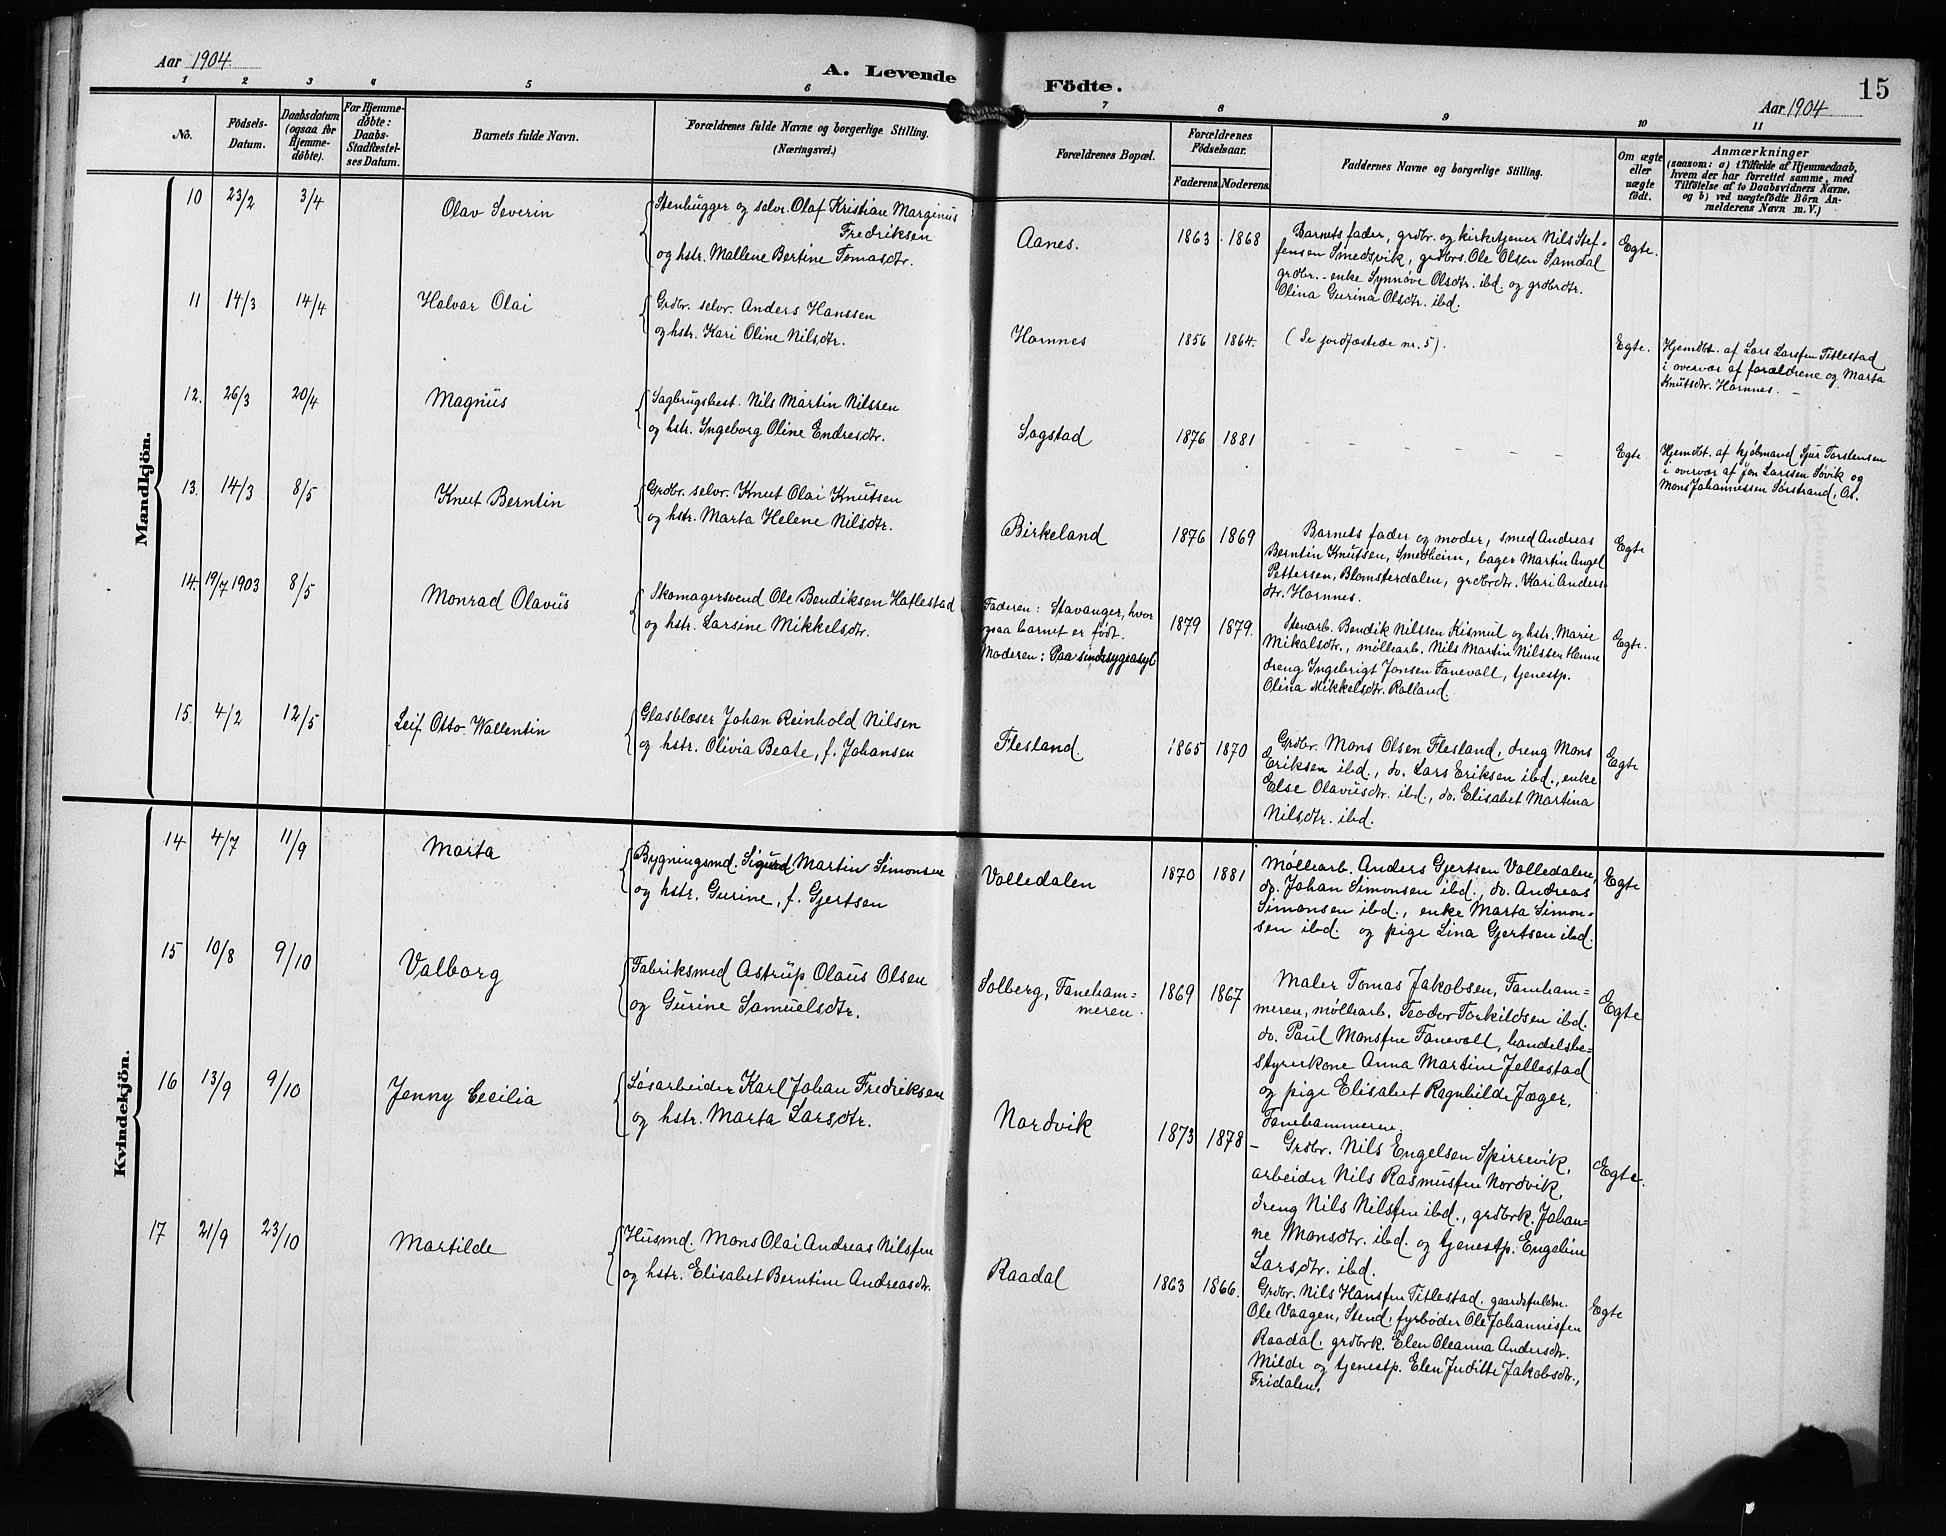 Aar 1904
A. Levende Födte.
15
Aar 1904
1 2 3 4 5 6 7 8 9 10 11
No.
Födsels-
Datum.
Daabsdatum
(ogsaa för
Hjemme-
döbte).
For Hjemme-
döbte:
Daabs-
Stadfæstel-
ses Datum.
Barnets fulde Navn.
Forældrenes fulde Navne og borgerlige Stilling.
(Næringsvei.)
Forældrenes Bopæl.
Forældrenes
Födselsaar.
Faderens. Moderens.
Faddernes Navne og borgerlige Stilling.
Om ægte
eller
uægte
födt.
Anmærkninger
(saasom: a) i Tilfælde af Hjemmedaab,
hvem der har forrettet samme, med
Tilföielse af to Daabsvidners Navne,
og b) ved uægtefödte Börn An-
melderens Navn m. V.)
Mandkjön.
10 23/2 3/4 Olav Severin
Stenhugger og selv. Olaf Kristian Marginus
Fredriksen
og hstr. Mallene Bertine Tomasdtr.
Aanes. 1863. 1868
Barnets fader, grdbr. og kirketjener Nils Stef-
fensen Smedsvik, grdbrs. Ole Olsen Samdal
grdbr.-enke Synnøve Olsdtr. ibd. og grdbrdtr.
Olina Gurina Olsdtr. ibd.
Egte.
11 14/3 14/4 Halvar Olai
Grdbr. selv. Anders Hanssen
og hstr. Kari Oline Nilsdtr.
Hamnes 1856 1864.
(Se jordfæstede nr. 5).
Egte.
Hjemdbt. af Lars Larsfen Titlestad
i overvær af forældrene og Marta
Knutsdtr. Hamnes. –
12. 26/3 20/4 Magnus
Sagbrugsbest. Nils Martin Nilssen
og hstr. Ingeborg Oline Endresdtr.
Sagstad 1876 1881
– – – – – –
Egte
Hjemdbt. af kjøbmand Sjur Torstensen
i overvær af Jon Larssen Søvik og
Mons Johannessen Sørstrand, Os.
13. 14/3 8/5 Knut Berntin
Grdbr. selv. Knut Olai Knutsen
og hstr. Marta Helene Nilsdtr.
Birkeland 1876 1869
Barnets fader og moder, smed Andreas
Berntin Knutsen, Smedheim, bager Martin Angel
Pettersen, Blomsterdalen, grdbrdtr. Kari Anders-
dtr. Hamnes.
Egte
14. 19/7 1903 8/5 Monrad Olavus
Skomagersvend Ole Bendiksen Hatlestad
og hstr. Larsine Mikkelsdtr.
Faderen: Stavanger, hvor
ogsaa barnet er født.
Moderen: Paa sindssygeasyl
1879 1879.
Stenarb. Bendik Nilssen Kismul og hstr. Marie
Mikalsdtr., møllearb. Nils Martin Nilssen Hamre
dreng Ingebrigt Jonsen Fanevall, tjenestp.
Olina Mikkelsdtr. Rolland.
Egte.
15. 4/2 12/5 Leif Otto Wallentin
Glasblæser Johan Reinhold Nilsen
og hstr. Olivia Beate, f. Johansen
Flesland. 1865 1870
Grdbr. Mons Olsen Flesland, dreng Mons
Eriksen ibd., do. Lars Eriksen ibd., enke
Else Olavusdtr. ibd., do. Elisabet Martina
Nilsdtr. ibd.
Egte
Kvindekjön.
14 4/7 11/9 Marta
Bygningsmd. Sigurd Martin Simonsen
og hstr. Gurine, f. Gjertsen
Volledalen 1870 1881
Møllearb. Anders Gjertsen Volledalen,
do. Johan Simonsen ibd., do. Andreas
Simonsen ibd., enke Marta Simon-
sen ibd. og pige Lina Gjertsen ibd.
Egte
15 10/8 9/10 Valborg
Fabriksmed Astrup Olaus Olsen
og Gurine Samuelsdtr.
Solberg, Faneham-
meren. 1869 1867
Maler Tomas Jakobsen, Faneham-
meren, møllearb. Teodor Torkildsen ibd.
do. Paul Monsfen Fanevall, handelsbe-
styrerkone Anna Martine Jellestad
og pige Elisabet Ragnhilde Jæger,
Fanehammeren.
Egte
16 13/9 9/10 Jenny Cecilia
Løsarbeider Karl Johan Fredriksen
og hstr. Marta Larsdtr.
Nordvik 1873 1878
– Grdbr. Nils Engelsen Spirrevik,
arbeider Nils Rasmusfen Nordvik,
dreng Nils Nilsfen ibd., grdbrk. Johan-
ne Monsdtr. ibd. og tjenestp. Engeline
Larsdtr. ibd.
Egte.
17 21/9 23/10 Martilde
Husmd. Mons Olai Andreas Nilsfen
og hstr. Elisabet Berntine Andreasdtr.
Raadal 1863 1866.
Grdbr. Nils Hansfen Titlestad, gaardsfuldm.
Ole Vaagen, Stend, fyrbøder Ole Johannesfen
Raadal, grdbrk. Elen Oleanna Andersdtr.
Milde og tjenestp. Elen Juditte Jakobsdtr.,
Fridalen.
Egte